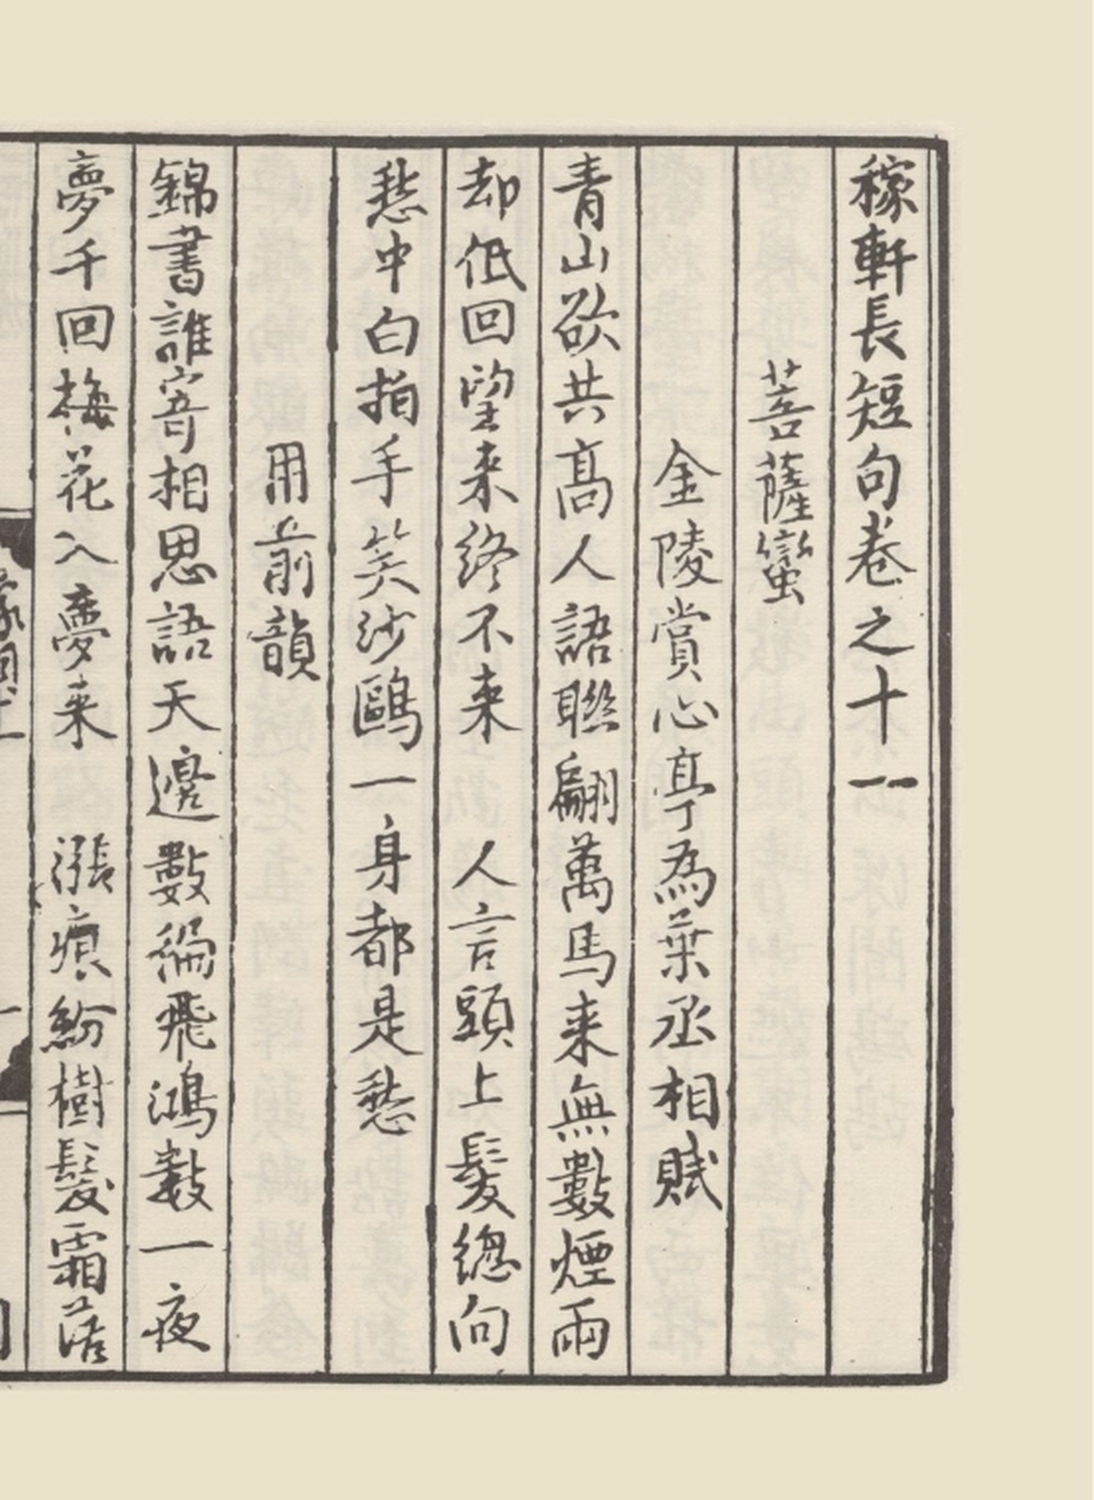 稼軒長短句卷之十一
菩薩蠻
金陵賞心亭為葉丞相賦
青山欲共高人語聯翩萬馬来無數煙雨
却低回望来終不来　人言頭上髮總向
愁中白拍手笑沙鷗一身都是愁
用前韻
錦書誰寄相思語天邊數徧飛鴻數一夜
夢千回梅花入夢来　漲痕紛樹髮霜落